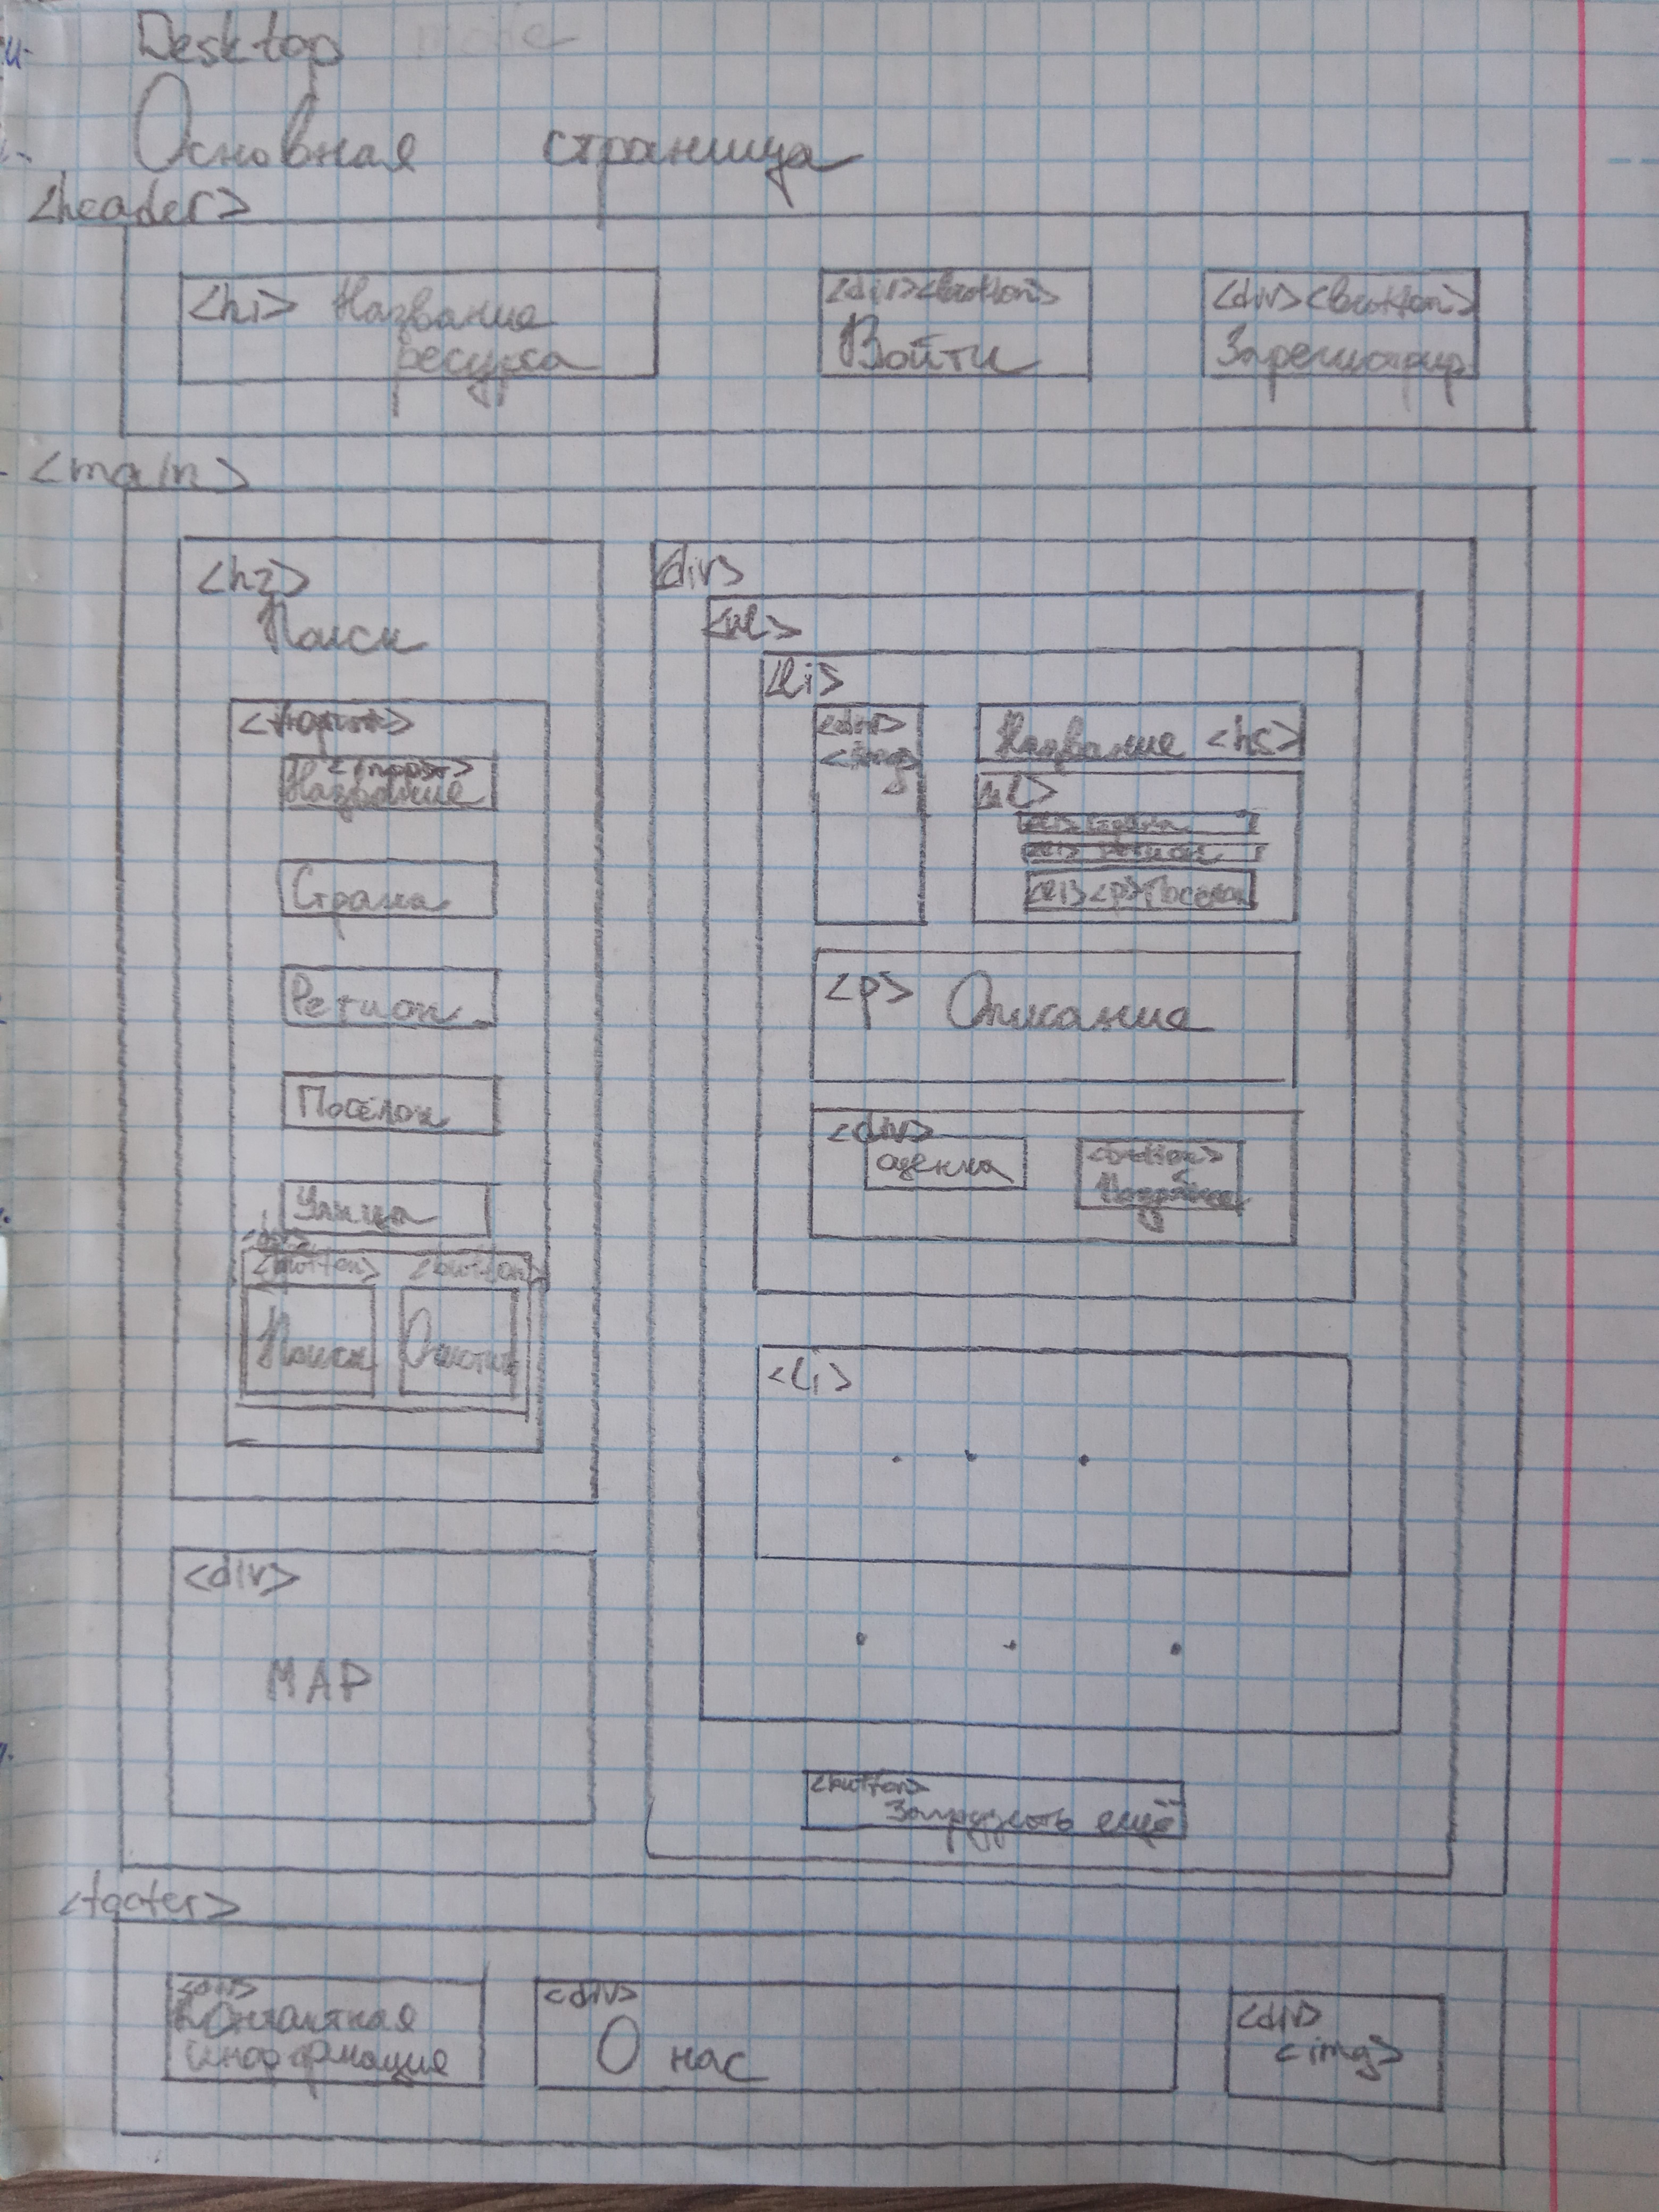 Desktop mode
Основная страница
<header>
<h1> Название
ресурса
<div><button>
Войти
<div><button>
Зарегистрир
<main>
<h2>
Поиск
<input>
Название
Страна
Регион
Посёлок
Улица
<div>
<button> <button>
Поиск Очистить
<div>
MAP
<div>
<ul>
<li>
<div>
<img>
Название <h3>
<ul>
<li> Страна
<li> Регион
<li><p> Посёлок
<p> Описание
<div>
оценка
<button>
Подробнее
<li>
. . .
. . .
<button>
Загрузить ещё
<footer>
<div>
Контактная
информация
<div>
О нас
<div>
<img>